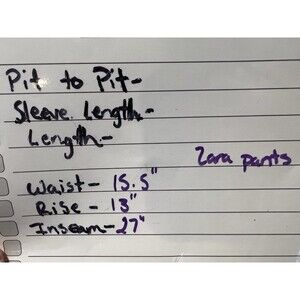 Pit to Pit-
Sleeve Length-
Length-
Zara pants
Waist- 15.5"
Rise - 13"
Inseam-27"